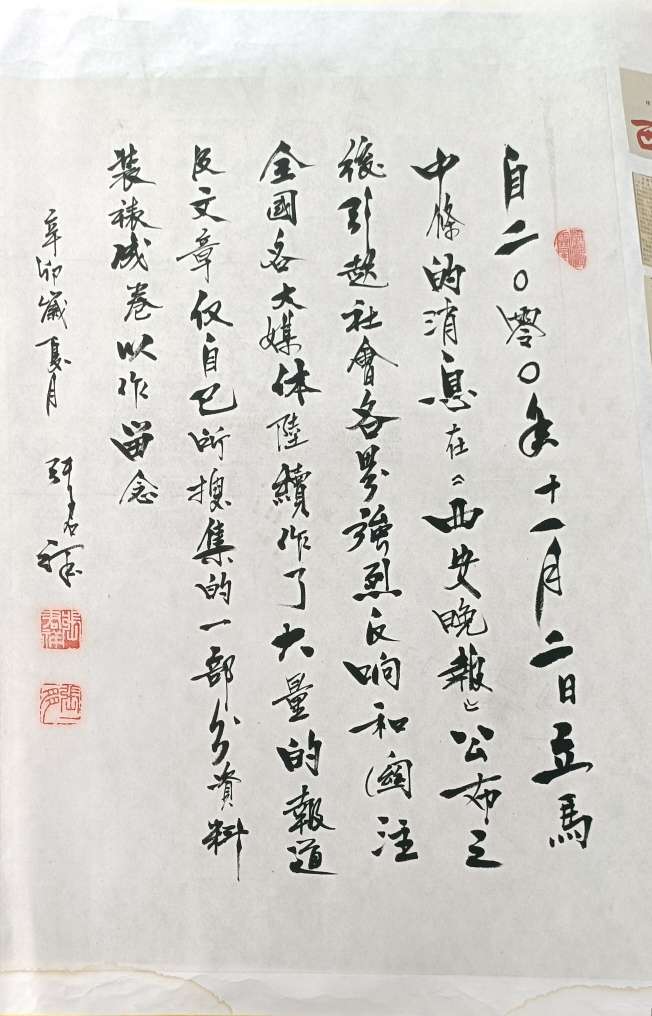 自二〇零〇年十一月二日立馬
中條的消息在《西安晚報》公布之
後引起社會各界強烈反响和關注
全國各大媒体陸續作了大量的報道
及文章仅自己所搜集的一部分資料
裝裱成卷以作留念
辛卯歲夏月 張君祥